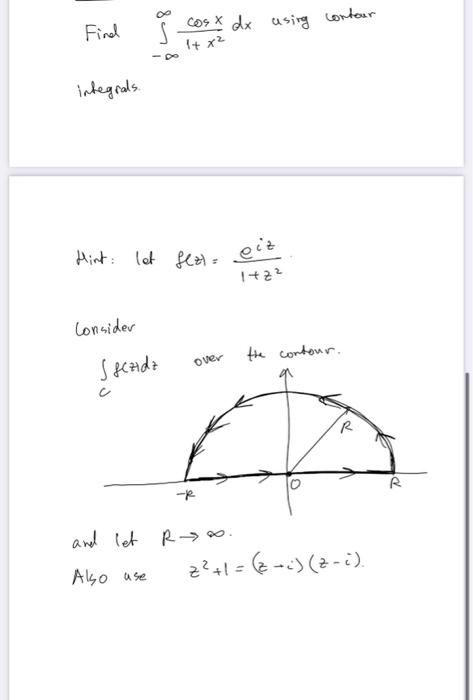 Find ∫_{-∞}^{∞} cos x / 1 + x² dx using contour
integrals.
Hint: let f(z) = e^{iz} / 1 + z² .
Consider
∫_C f(z)dz over the contour.
R
-R O R
and let R → ∞.
Also use z² + 1 = (z - i)(z - i).